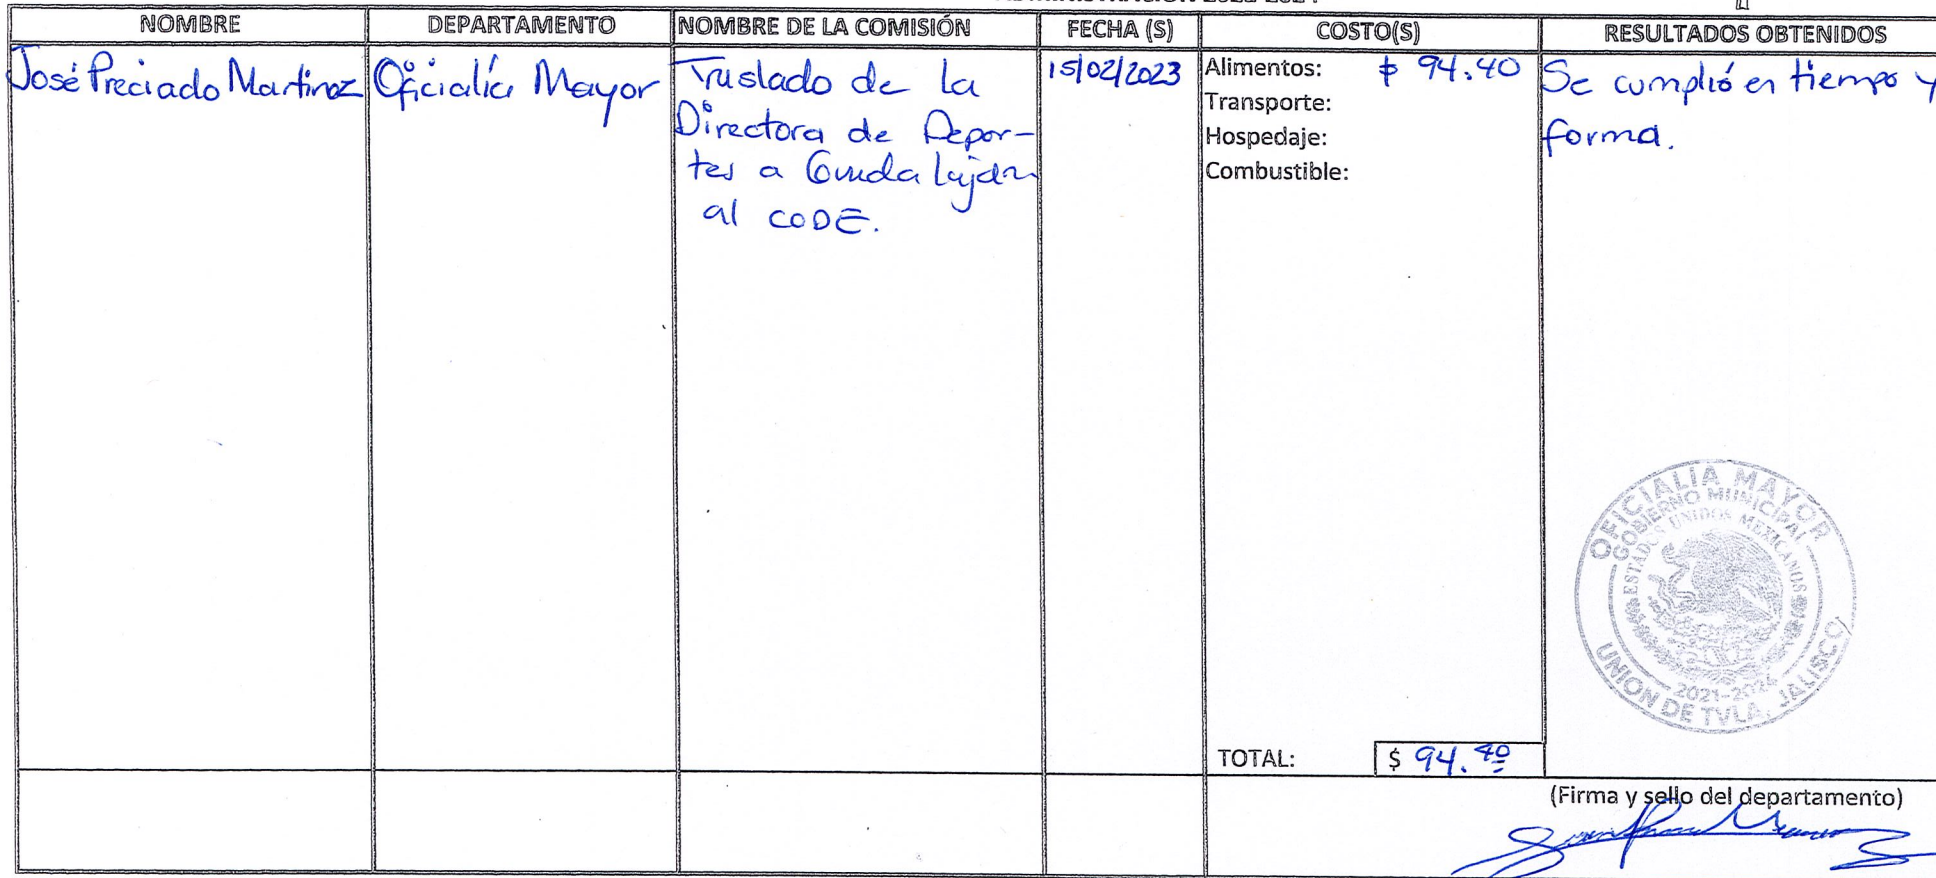 NOMBRE DEPARTAMENTO NOMBRE DE LA COMISIÓN FECHA (S) COSTO(S) RESULTADOS OBTENIDOS
José Preciado Martinez
Oficialía Mayor
Truslado de la
Directora de Depor-
tes a Guadalajara
al CODE.
15/02/2023
Alimentos: $ 94.40
Transporte:
Hospedaje:
Combustible:
Se cumplió en tiempo y
forma.
OFICIALIA MAYOR
GOBIERNO MUNICIPAL
ESTADOS UNIDOS MEXICANOS
2021-2024
UNION DE TULA, JALISCO
TOTAL: $ 94.40
(Firma y sello del departamento)